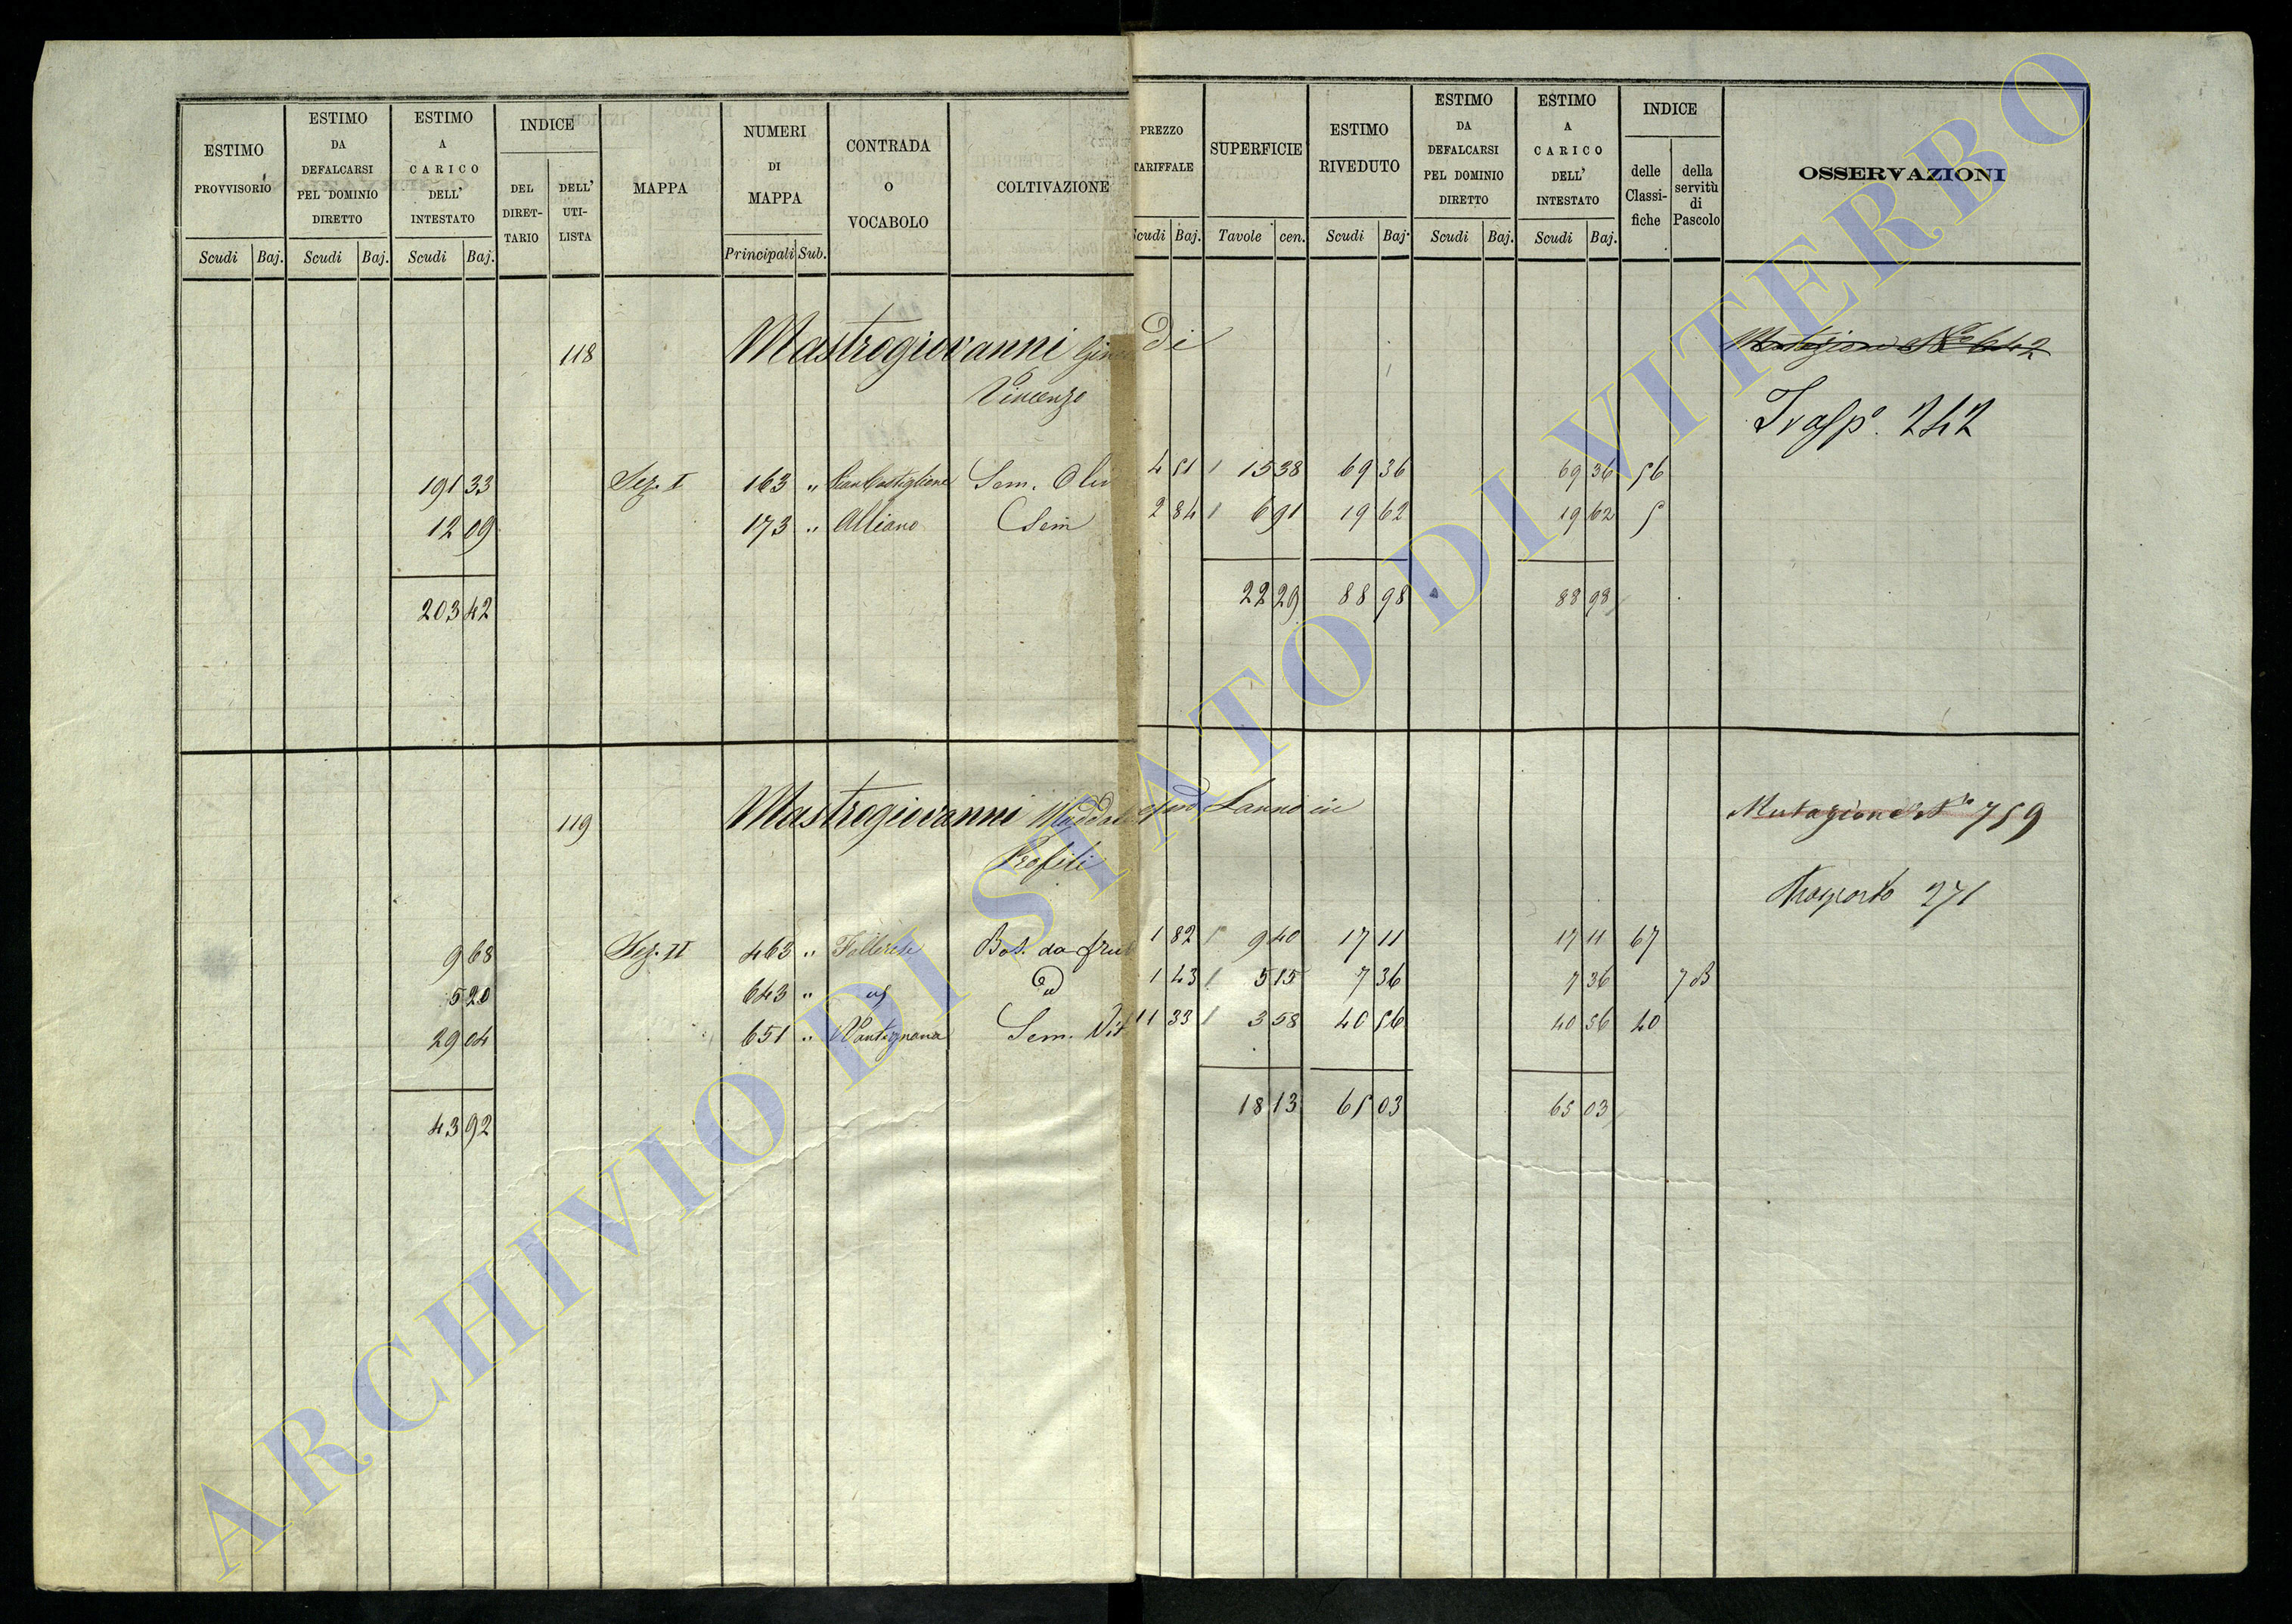 ESTIMO PROVVISORIO
Scudi Baj.
ESTIMO DA DEFALCARSI PEL DOMINIO DIRETTO
Scudi Baj.
ESTIMO A CARICO DELL' INTESTATO
Scudi Baj.
INDICE
DEL DIRET-TARIO
DELL' UTI-LISTA
MAPPA
NUMERI DI MAPPA
Principali Sub.
CONTRADA O VOCABOLO
COLTIVAZIONE
PREZZO TARIFFALE
Scudi Baj.
SUPERFICIE
Tavole cen.
ESTIMO RIVEDUTO
Scudi Baj.
ESTIMO DA DEFALCARSI PEL DOMINIO DIRETTO
Scudi Baj.
ESTIMO A CARICO DELL' INTESTATO
Scudi Baj.
INDICE
delle Classi-fiche
della servitù di Pascolo
OSSERVAZIONI
118 Mastrogiovanni di Mutazione N° 642
Vincenzo
Trasp° 242
191 33 Sez. I 163 " Sem. Oliv 4 51 15 38 69 36 69 36 56
12 09 173 " Alliano Sem 2 84 6 91 19 62 19 62 5
203 42 22 29 88 98 88 98
119 Mastrogiovanni in Mutazione N° 759
Profili
Trasporto 271
9 68 Sez. II 463 " Bos. da frut 1 82 9 40 17 11 17 11 67
5 20 643 " 1 43 5 15 7 36 7 36 7 B
29 04 651 " Sem. Vit 11 33 3 58 40 56 40 56 40
43 92 18 13 65 03 65 03
ARCHIVIO DI STATO DI VITERBO